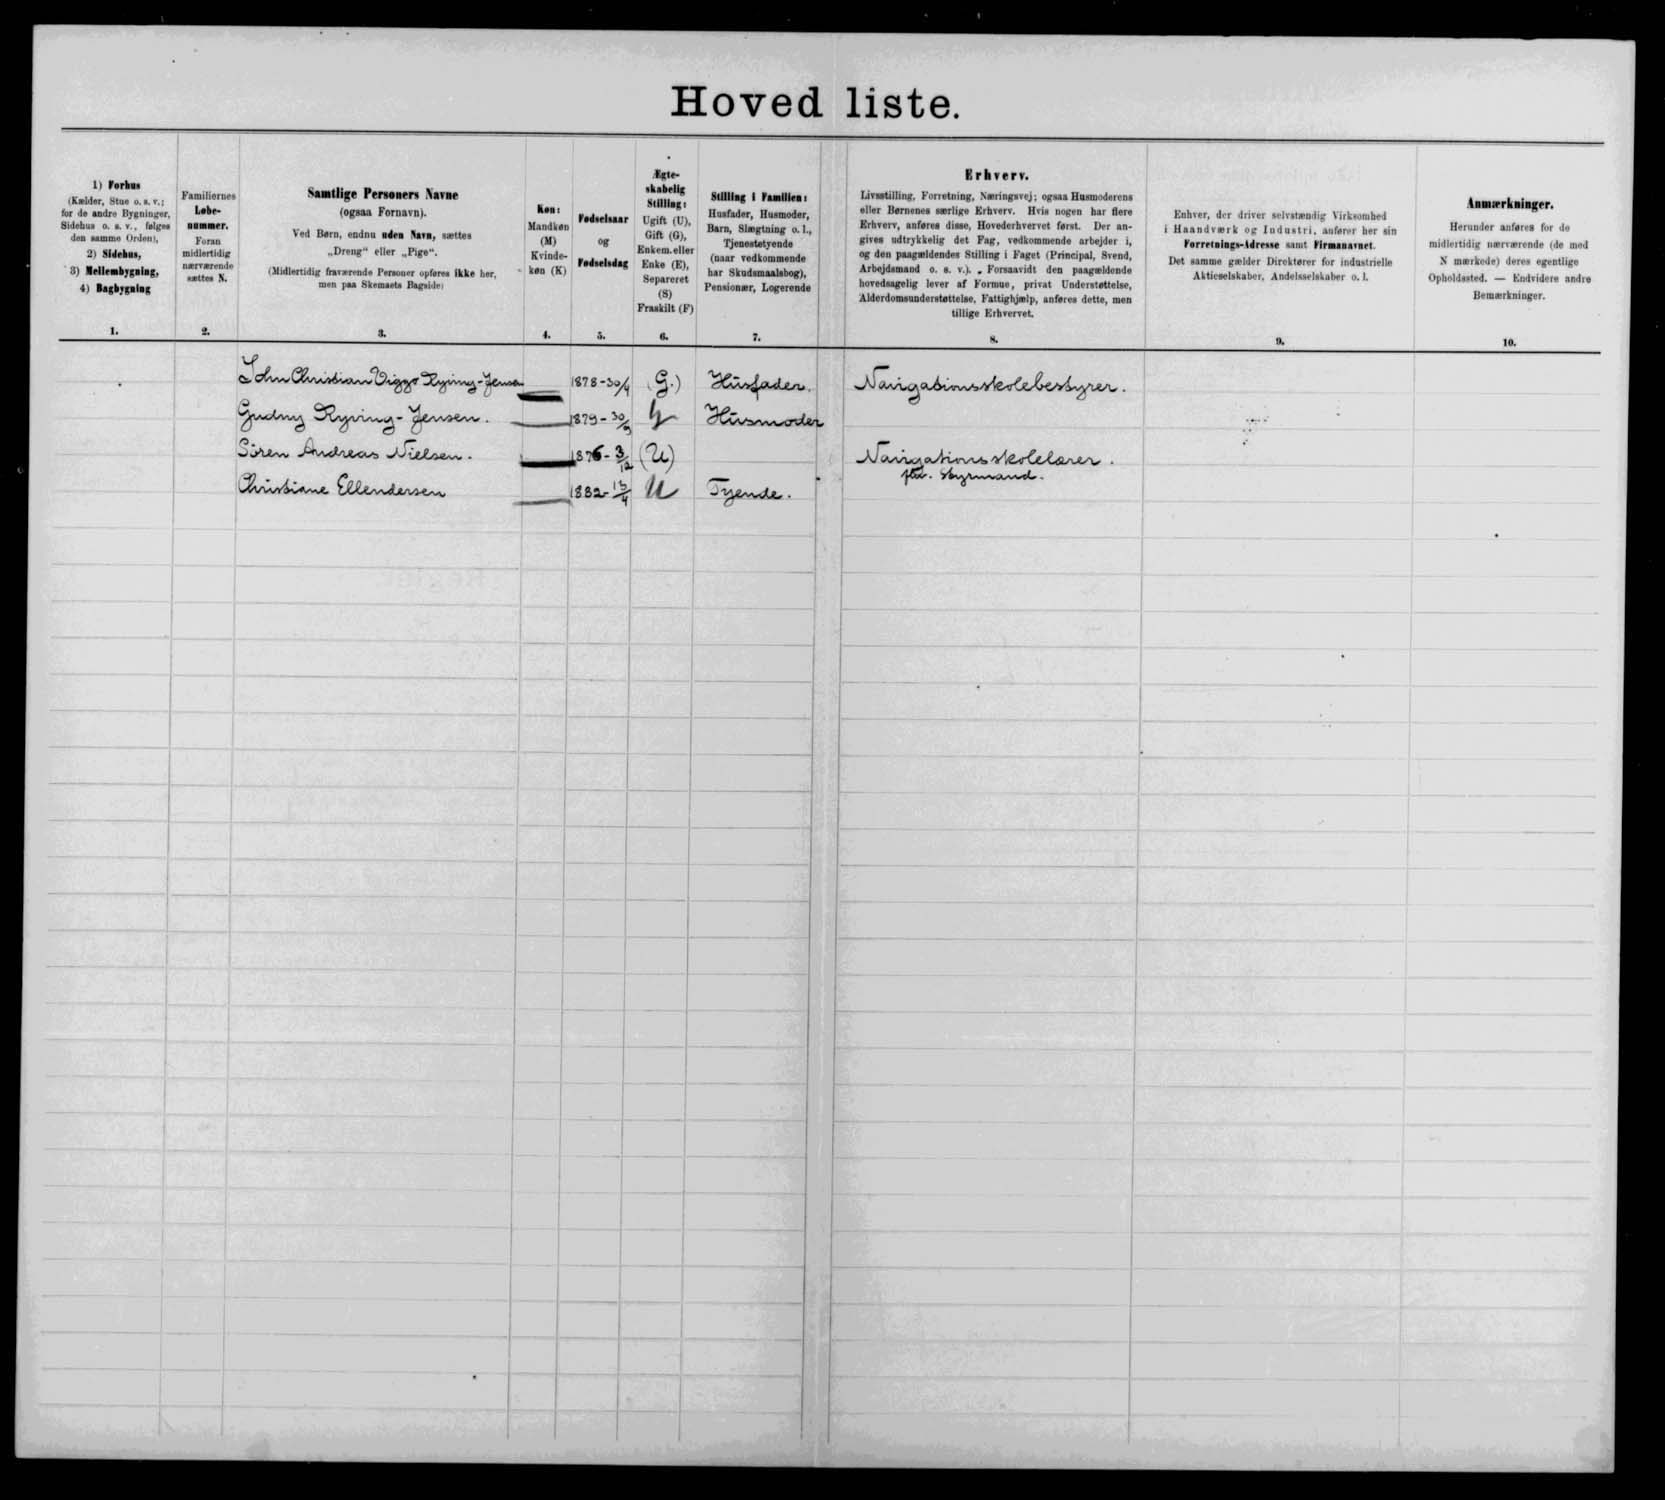 Hoved liste.
1) Forhus
(Kælder, Stue o. s. v.;
for de andre Bygninger,
Sidehus o. s. v., følges
den samme Orden),
2) Sidehus,
3) Mellembygning,
4) Bagbygning
1.
Familiernes
Løbe-
nummer.
Foran
midlertidig
nærværende
sættes N.
2.
Samtlige Personers Navne
(ogsaa Fornavn).
Ved Børn, endnu uden Navn, sættes
„Dreng“ eller „Pige“.
(Midlertidig fraværende Personer opføres ikke her,
men paa Skemaets Bagside)
3.
Køn:
Mandkøn
(M)
Kvinde-
køn (K)
4.
Fødselsaar
og
Fødselsdag
5.
Ægte-
skabelig
Stilling:
Ugift (U),
Gift (G),
Enkem. eller
Enke (E),
Separeret
(S)
Fraskilt (F)
6.
Stilling i Familien:
Husfader, Husmoder,
Barn, Slægtning o. l.,
Tjenestetyende
(naar vedkommende
har Skudsmaalsbog),
Pensionær, Logerende
7.
Erhverv.
Livsstilling, Forretning, Næringsvej; ogsaa Husmoderens
eller Børnenes særlige Erhverv. Hvis nogen har flere
Erhverv, anføres disse, Hovederhvervet først. Der an-
gives udtrykkelig det Fag, vedkommende arbejder i,
og den paagældendes Stilling i Faget (Principal, Svend,
Arbejdsmand o. s. v.). Forsaavidt den paagældende
hovedsagelig lever af Formue, privat Understøttelse,
Alderdomsunderstøttelse, Fattighjælp, anføres dette, men
tillige Erhvervet.
8.
Enhver, der driver selvstændig Virksomhed
i Haandværk og Industri, anfører her sin
Forretnings-Adresse samt Firmanavnet.
Det samme gælder Direktører for industrielle
Aktieselskaber, Andelsselskaber o. l.
9.
Anmærkninger.
Herunder anføres for de
midlertidig nærværende (de med
N mærkede) deres egentlige
Opholdssted. — Endvidere andre
Bemærkninger.
10.
John Christian Viggo Ryving-Jensen 1878-30/4 (G.) Husfader. Navigationsskolebestyrer.
Gudny Ryving-Jensen. 1879-30/9 G Husmoder
Sören Andreas Nielsen. 1876-3/12 (U) Navigationsskolelærer.
Styrmand.
Christiane Ellendersen 1882-13/4 U Tyende.